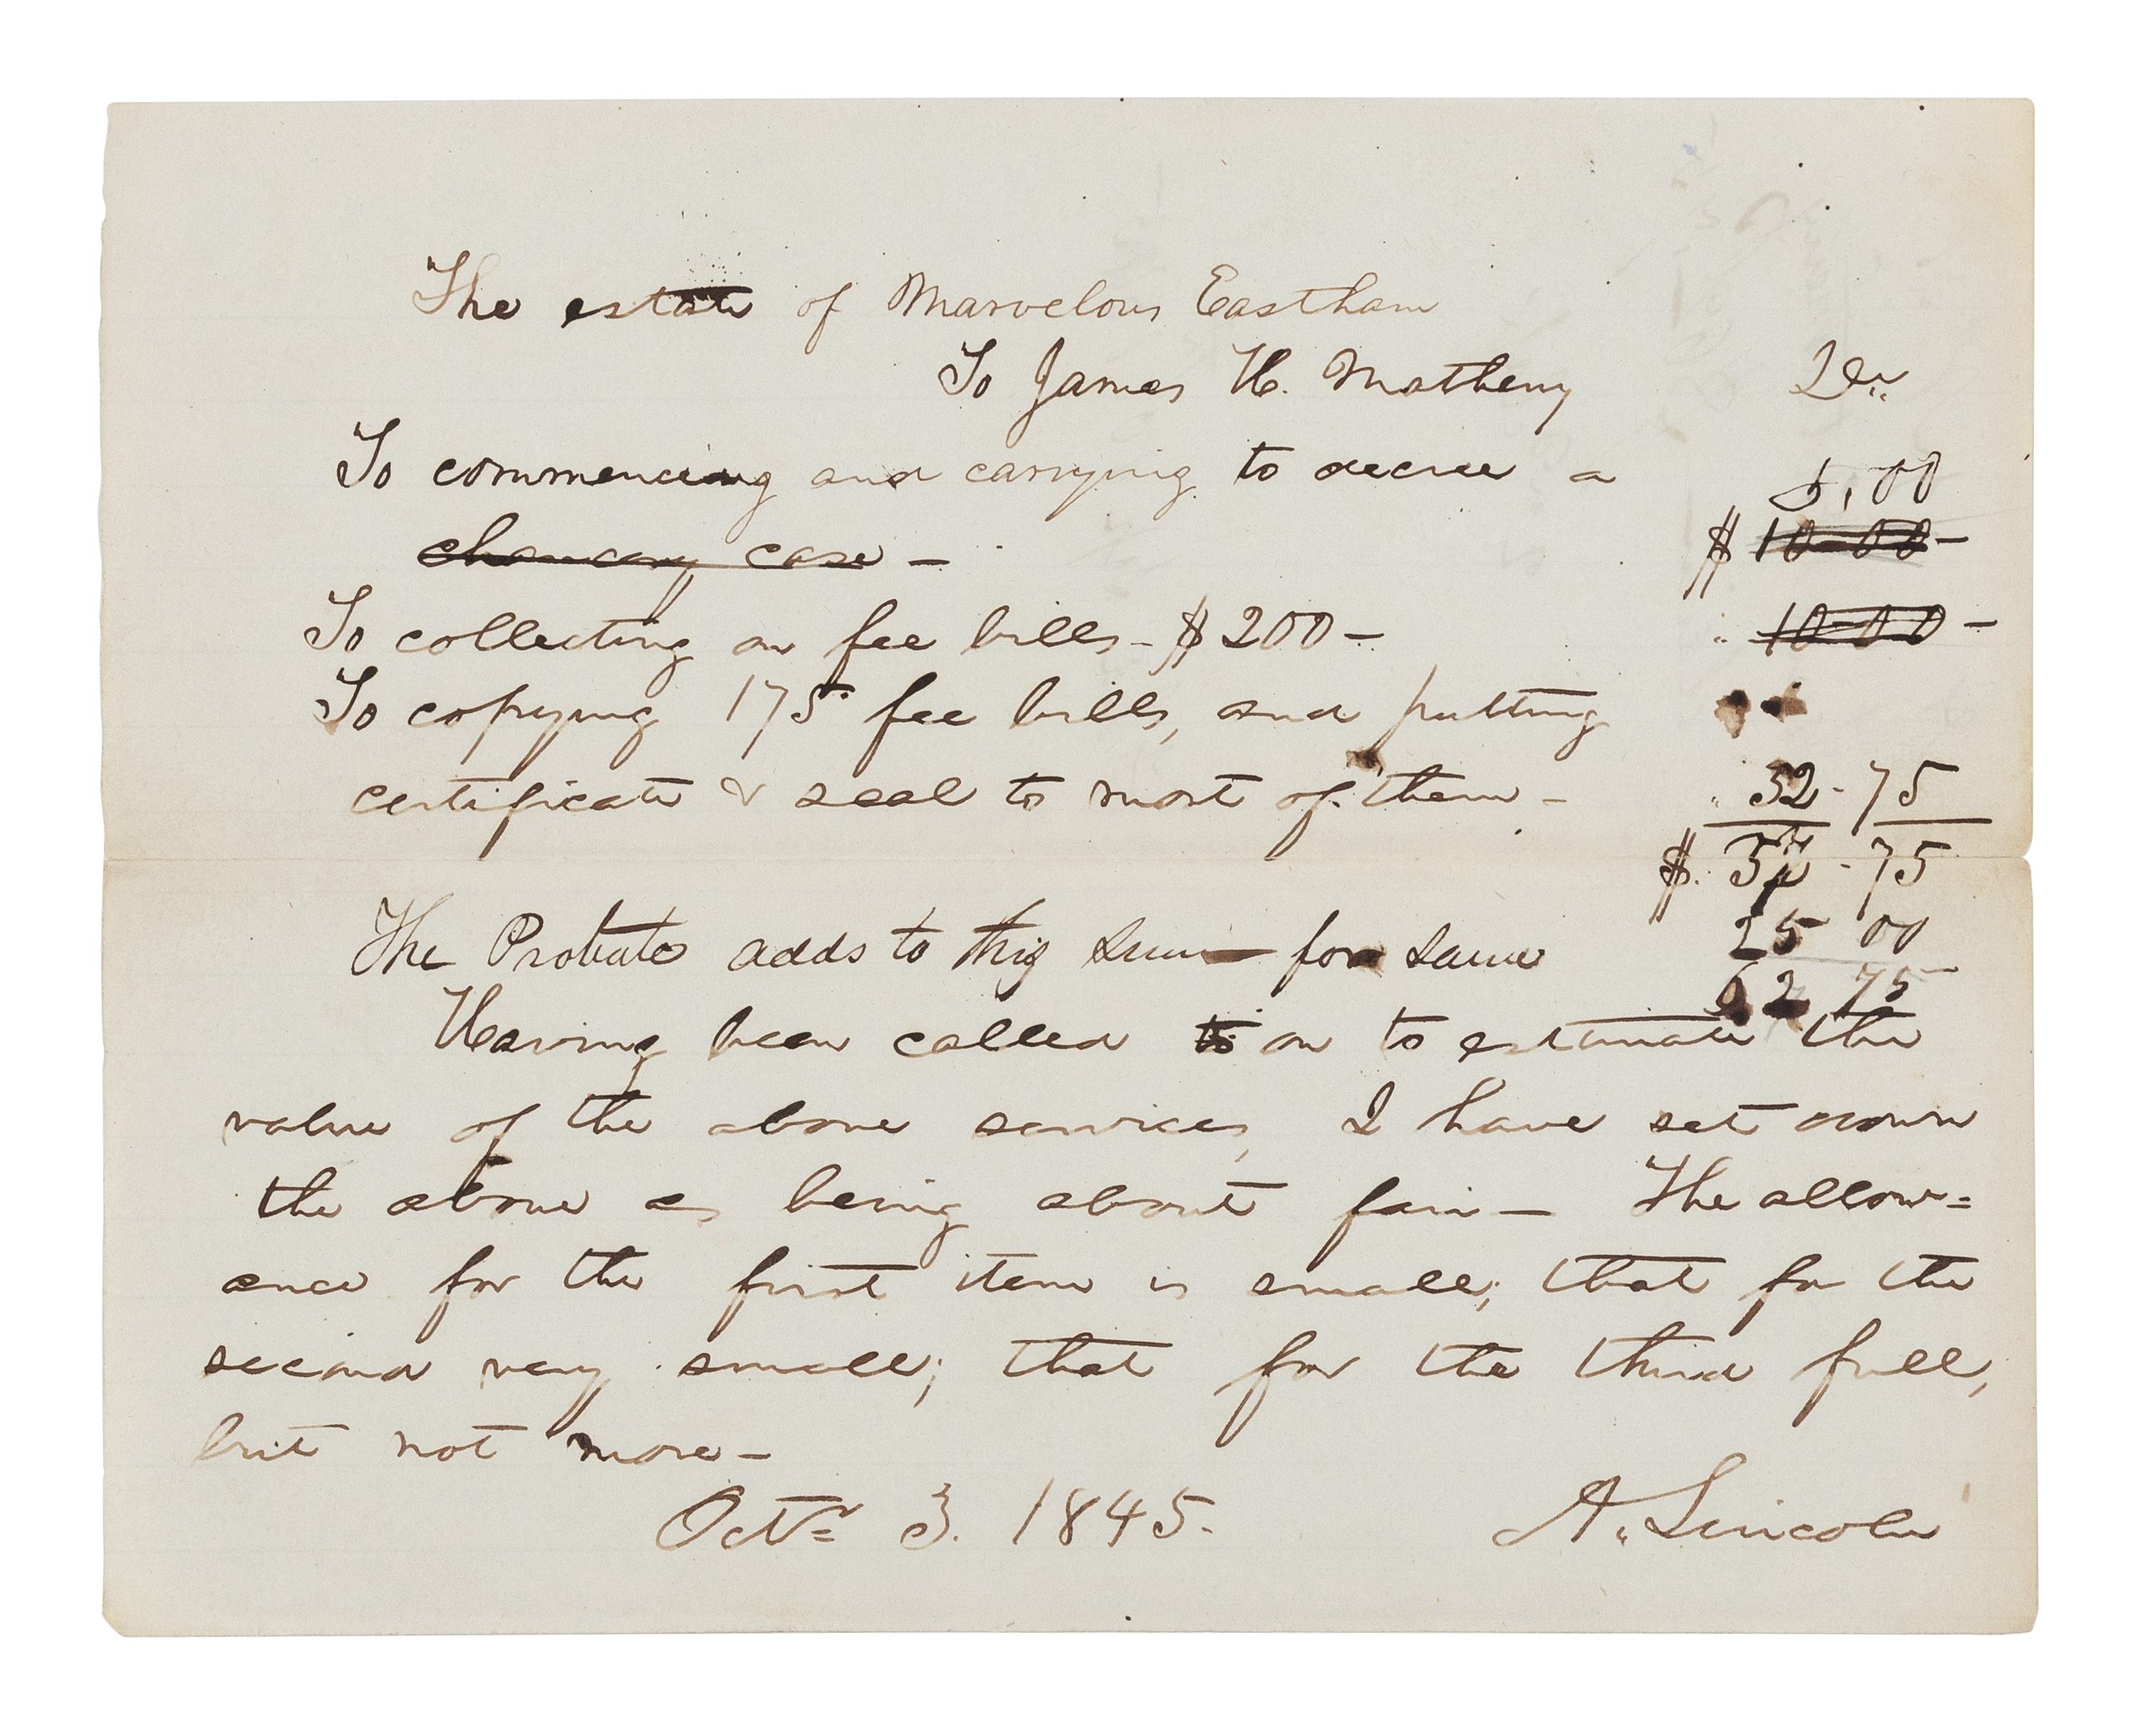 The estate of Marvelous Eastham
To James H. Matheny Dr.
To commencing and carrying to decree a 5.00
chancery case – $ 10-00 –
To collecting on fee bills – $200 – " 10-00 –
To copying 175 fee bills, and putting
certificate & seal to most of them – " 32-75
$. 37-75
The Probate adds to this sum for same 25 00
62 75
Having been called to on to estimate the
value of the above services, I have set down
the above as being about fair – The allow=
ance for the first item is small; that for the
second very small; that for the third full,
but not more –
Octr. 3. 1845. A. Lincoln